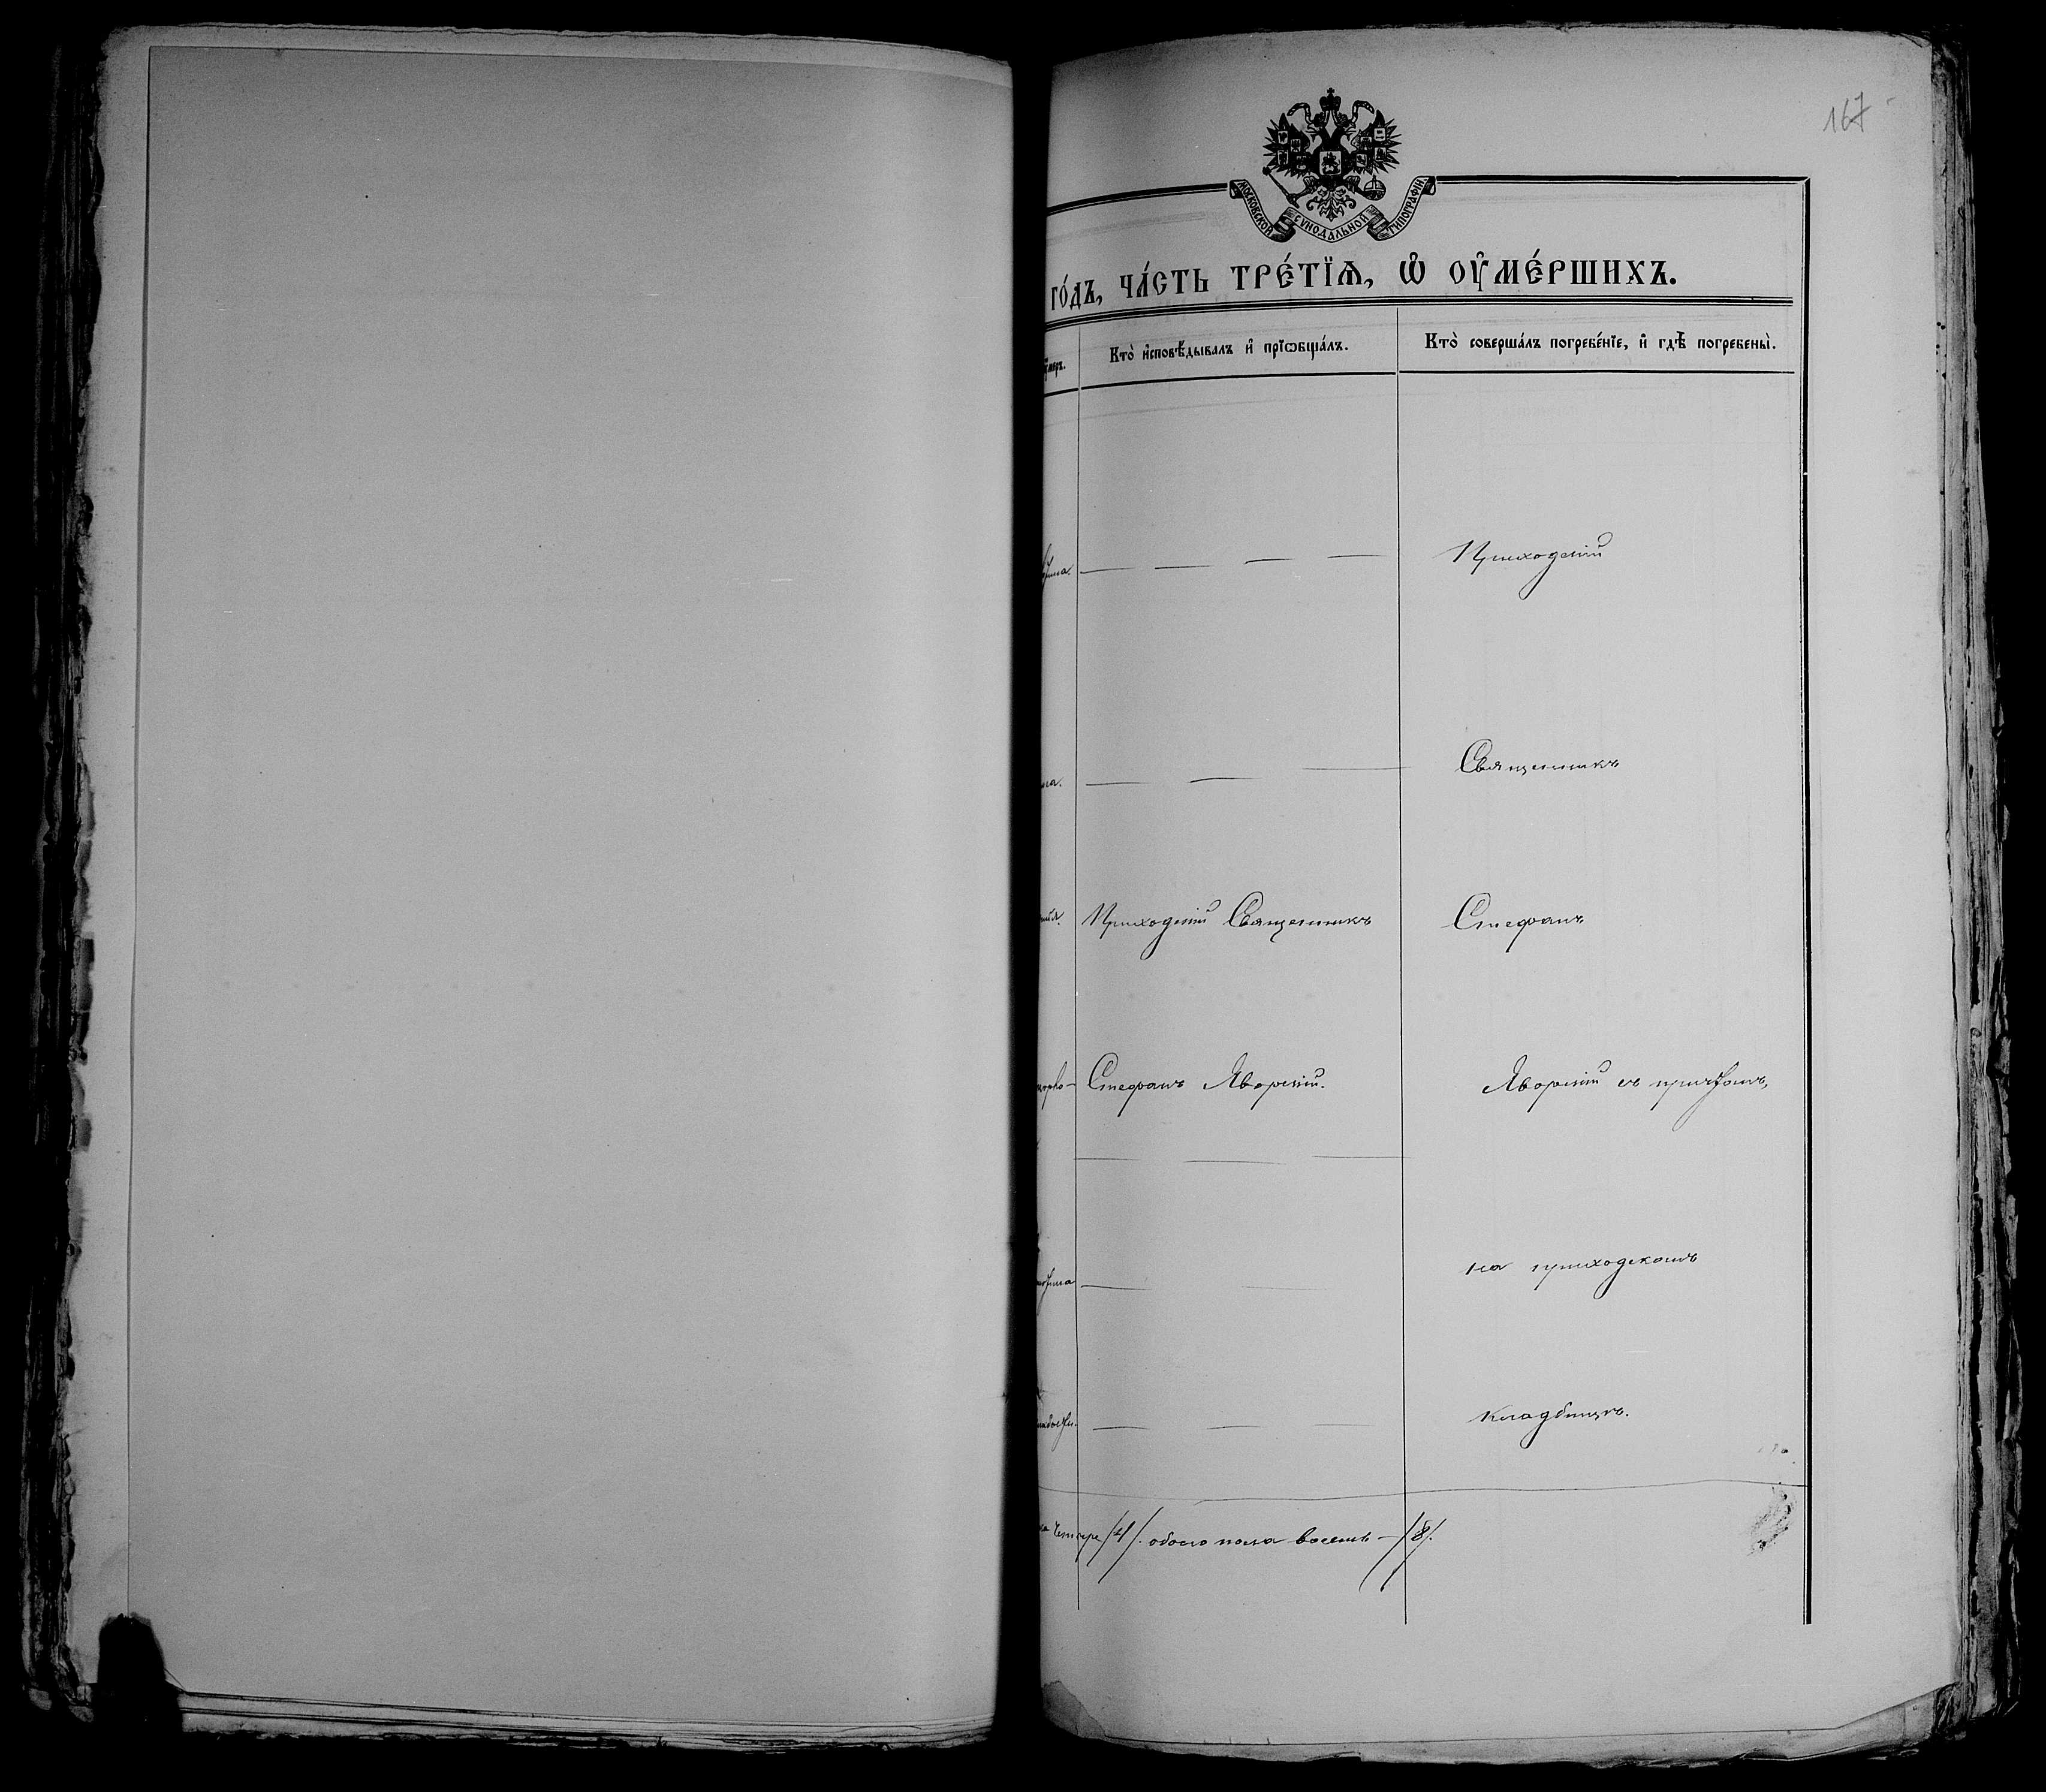 167
МОСКОВСКОЙ СѴНОДАЛЬНОЙ ТИПОГРАФІИ.
го́дъ, ча́сть тре́тїѧ, ѡ҆ ᲂу҆ме́ршихъ.
Кто̀ и҆сповѣ́дывалъ и҆ прїѡбща́лъ.
Кто̀ соверша́лъ погребе́нїе, и҆ гдѣ̀ погребены̀.
Приходскій
Священникъ
Приходскій Священникъ
Стефанъ
Стефанъ Яворскій.
Яворскій съ причтомъ,
на приходскомъ
кладбищѣ.
четыре /4/. обоего пола восемь – /8/.